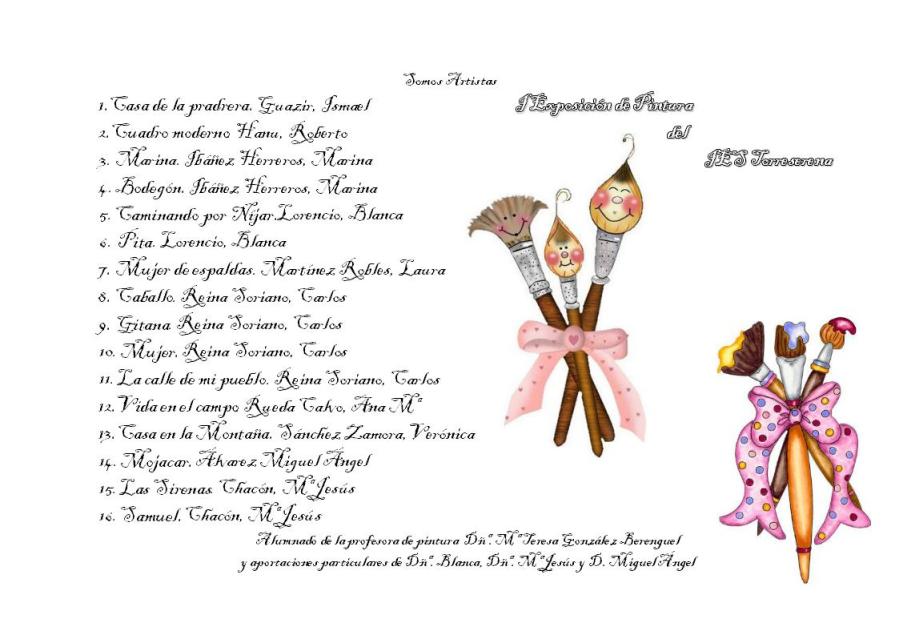 Somos Artistas
1. Casa de la pradrera. Guazir, Ismael
2. Cuadro moderno Hanu, Roberto
3. Marina. Ibáñez Herreros, Marina
4. Bodegón. Ibáñez Herreros, Marina
5. Caminando por Níjar.Lorencio, Blanca
6. Pita. Lorencio, Blanca
7. Mujer de espaldas. Martínez Robles, Laura
8. Caballo. Reina Soriano, Carlos
9. Gitana Reina Soriano, Carlos
10. Mujer. Reina Soriano, Carlos
11. La calle de mi pueblo. Reina Soriano, Carlos
12. Vida en el campo Rueda Calvo, Ana Mª
13. Casa en la Montaña. Sánchez Zamora, Verónica
14. Mojacar. Álvarez Miguel Ángel
15. Las Sirenas. Chacón, Mª Jesús
16. Samuel. Chacón, Mª Jesús
Alumnado de la profesora de pintura Dñª. Mª Teresa González Berenguel
y aportaciones particulares de Dñª. Blanca, Dñª. Mª Jesús y D. Miguel Ángel
I Exposición de Pintura
del
IES Torreserena